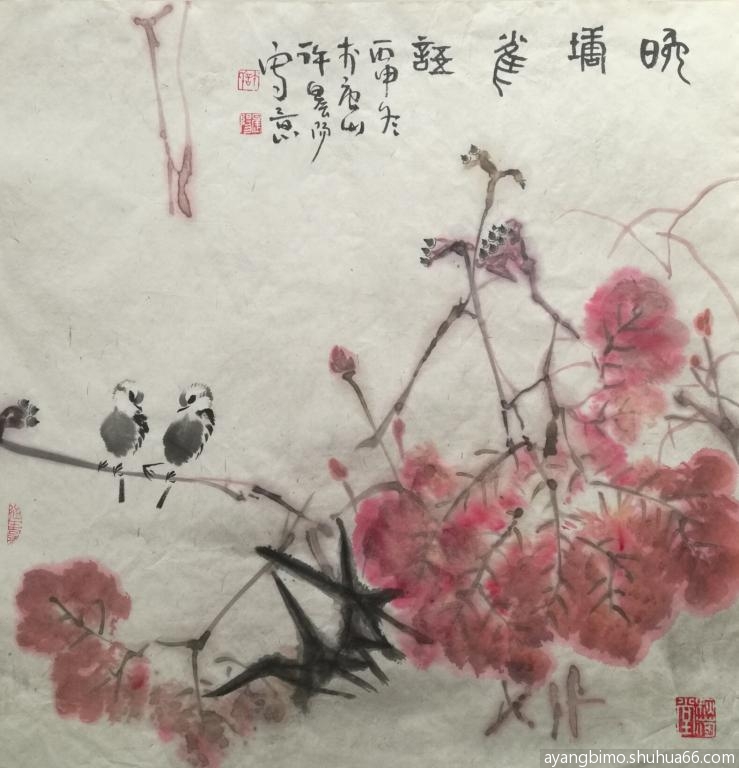 晚墉雀語
丙申冬
於唐山
許晨陽
寫意
許
晨陽
ayangbimo.shuhua66.com